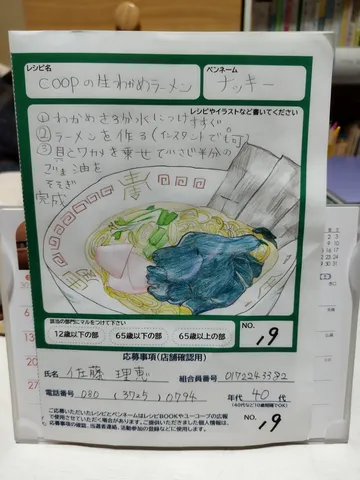 レシピ名
COOPの生わかめラーメン
ペンネーム
ナッキー
レシピやイラストなど書いてください
①わかめを3分水につけすぐ
②ラーメンを作る(インスタントでも可)
③具とワカメを乗せて小さじ半分の
ごま油を
そそぎ
完成
該当の部門にマルをつけて下さい
12歳以下の部
65歳以下の部
65歳以上の部
NO.
19
応募事項(店舗確認用)
氏名 佐藤 理恵
組合員番号 0172243372
電話番号 080 (3725) 0794
年代 40 代
(40代など10歳刻みでOK)
ご応募いただいたレシピとペンネームはレシピBOOKやユーコープの広報
で使用させていただく場合がありますので、ご了承ください。
NO.
19